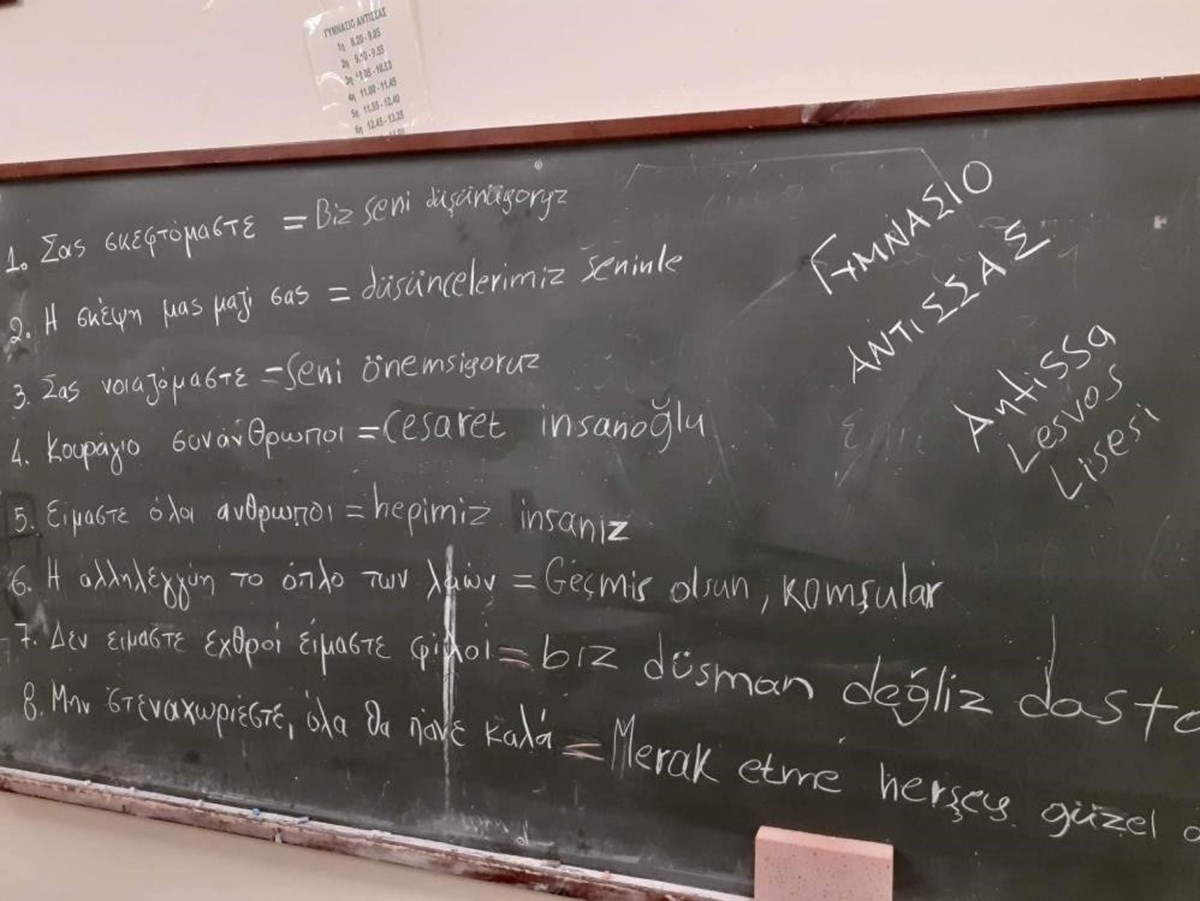 ΓΥΜΝΑΣΙΟ ΑΝΤΙΣΣΑΣ
1η 8.20 - 9.05
2η 9.10 - 9.55
3η
4η 11.00 - 11.45
5η 11.55 - 12.40
6η 12.45 - 13.25
1. Σας σκεφτόμαστε = Biz seni düşünüyoryz
2. Η σκέψη μας μαζί σας = düşüncelerimiz seninle
3. Σας νοιαζόμαστε = Seni önemsiyoruz
4. Κουράγιο συνάνθρωποι = Cesaret insanoğlu
5. Ειμαστε όλοι ανθρωποι = hepimiz insanız
6. Η αλληλεγγύη το όπλο των λαών = Geçmis olsun, komşular
7. Δεν ειμαστε εχθροί είμαστε φίλοι = biz düsman değliz dosto
8. Μην στεναχωριέστε, όλα θα πάνε καλά = Merak etme herşey güzel o
ΓΥΜΝΑΣΙΟ
ΑΝΤΙΣΣΑΣ
Antissa
Lesvos
Lisesi